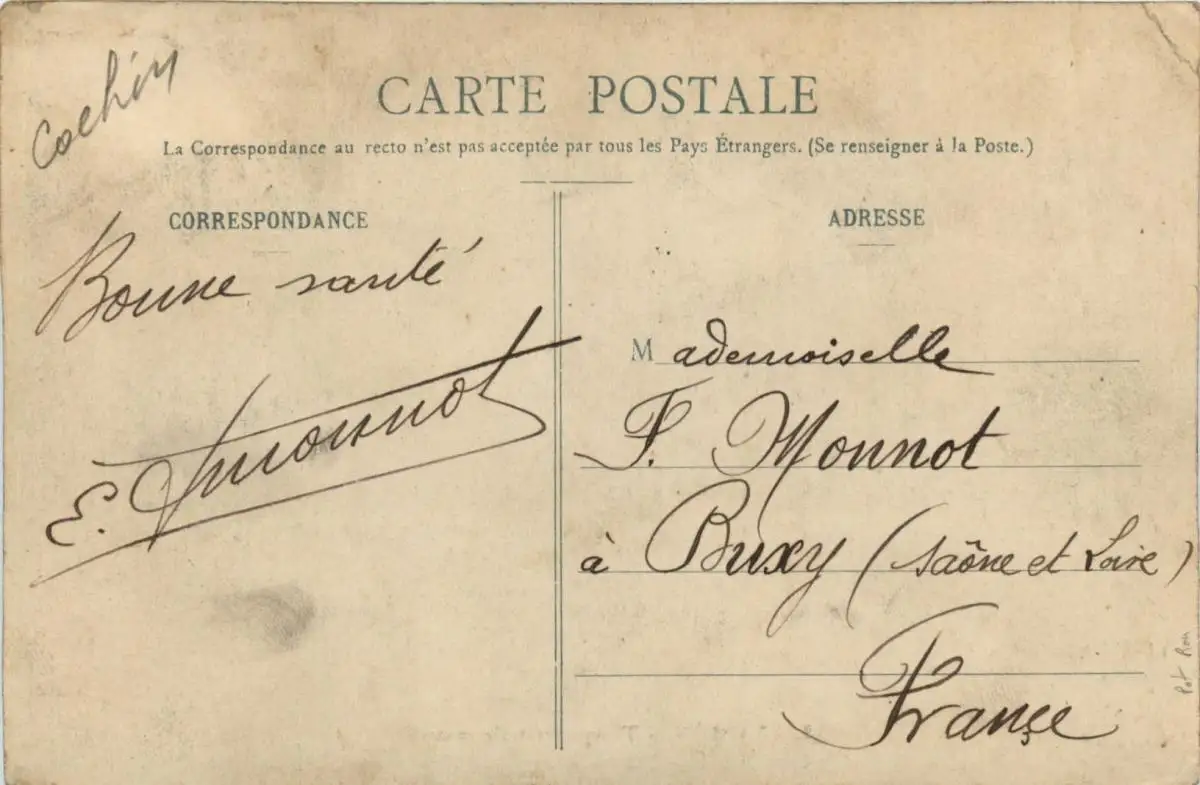 Cochin
CARTE POSTALE
La Correspondance au recto n'est pas acceptée par tous les Pays Étrangers. (Se renseigner à la Poste.)
CORRESPONDANCE
Bonne santé
E. Monnot
ADRESSE
Mademoiselle
F. Monnot
à Buxy (Saône et Loire)
Françe